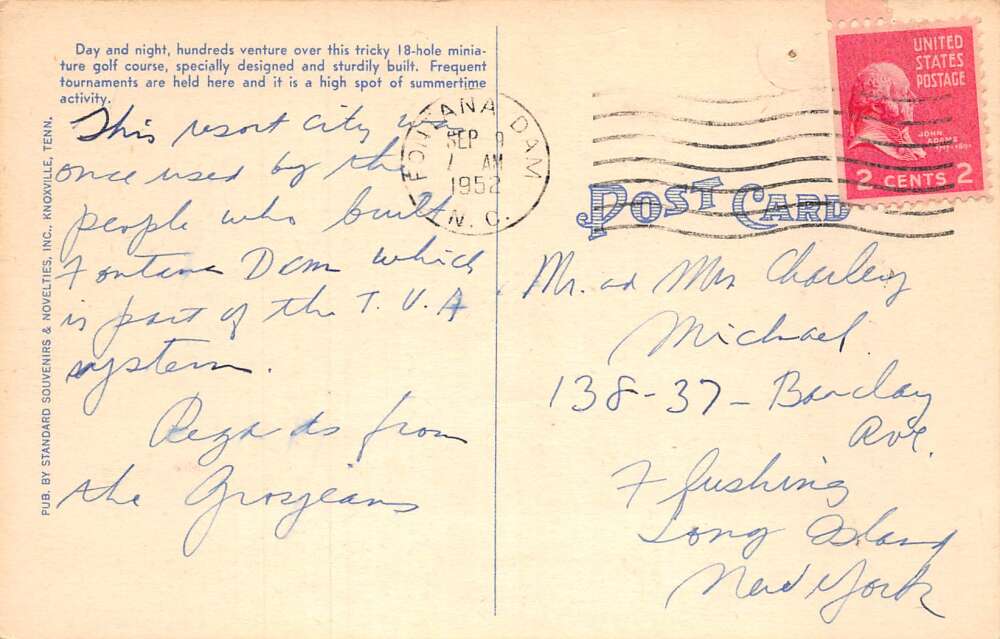 Day and night, hundreds venture over this tricky 18-hole minia-
ture golf course, specially designed and sturdily built. Frequent
tournaments are held here and it is a high spot of summertime
activity.
This resort city was
once used by the
people who built
Fontana Dam which
is part of the T.V.A
system.
Regards from
the Grosjeans
PUB. BY STANDARD SOUVENIRS & NOVELTIES, INC., KNOXVILLE, TENN.
FONTANA DAM
SEP 9
AM
1952
N.C.
UNITED
STATES
POSTAGE
JOHN
ADAMS
2 CENTS 2
POST CARD
Mr. ad Mrs Charley
Michael
138-37- Barclay
Ave.
Flushing
Long Island
New York